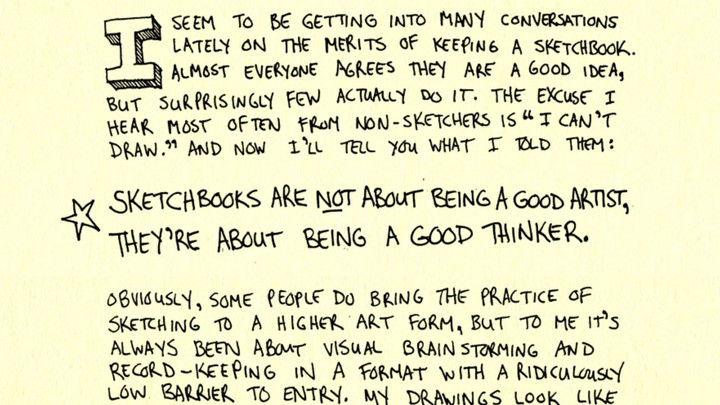 I SEEM TO BE GETTING INTO MANY CONVERSATIONS
LATELY ON THE MERITS OF KEEPING A SKETCHBOOK.
ALMOST EVERYONE AGREES THEY ARE A GOOD IDEA,
BUT SURPRISINGLY FEW ACTUALLY DO IT. THE EXCUSE I
HEAR MOST OFTEN FROM NON-SKETCHERS IS "I CAN'T
DRAW." AND NOW I'LL TELL YOU WHAT I TOLD THEM:
SKETCHBOOKS ARE NOT ABOUT BEING A GOOD ARTIST,
THEY'RE ABOUT BEING A GOOD THINKER.
OBVIOUSLY, SOME PEOPLE DO BRING THE PRACTICE OF
SKETCHING TO A HIGHER ART FORM, BUT TO ME IT'S
ALWAYS BEEN ABOUT VISUAL BRAINSTORMING AND
RECORD-KEEPING IN A FORMAT WITH A RIDICULOUSLY
LOW BARRIER TO ENTRY. MY DRAWINGS LOOK LIKE